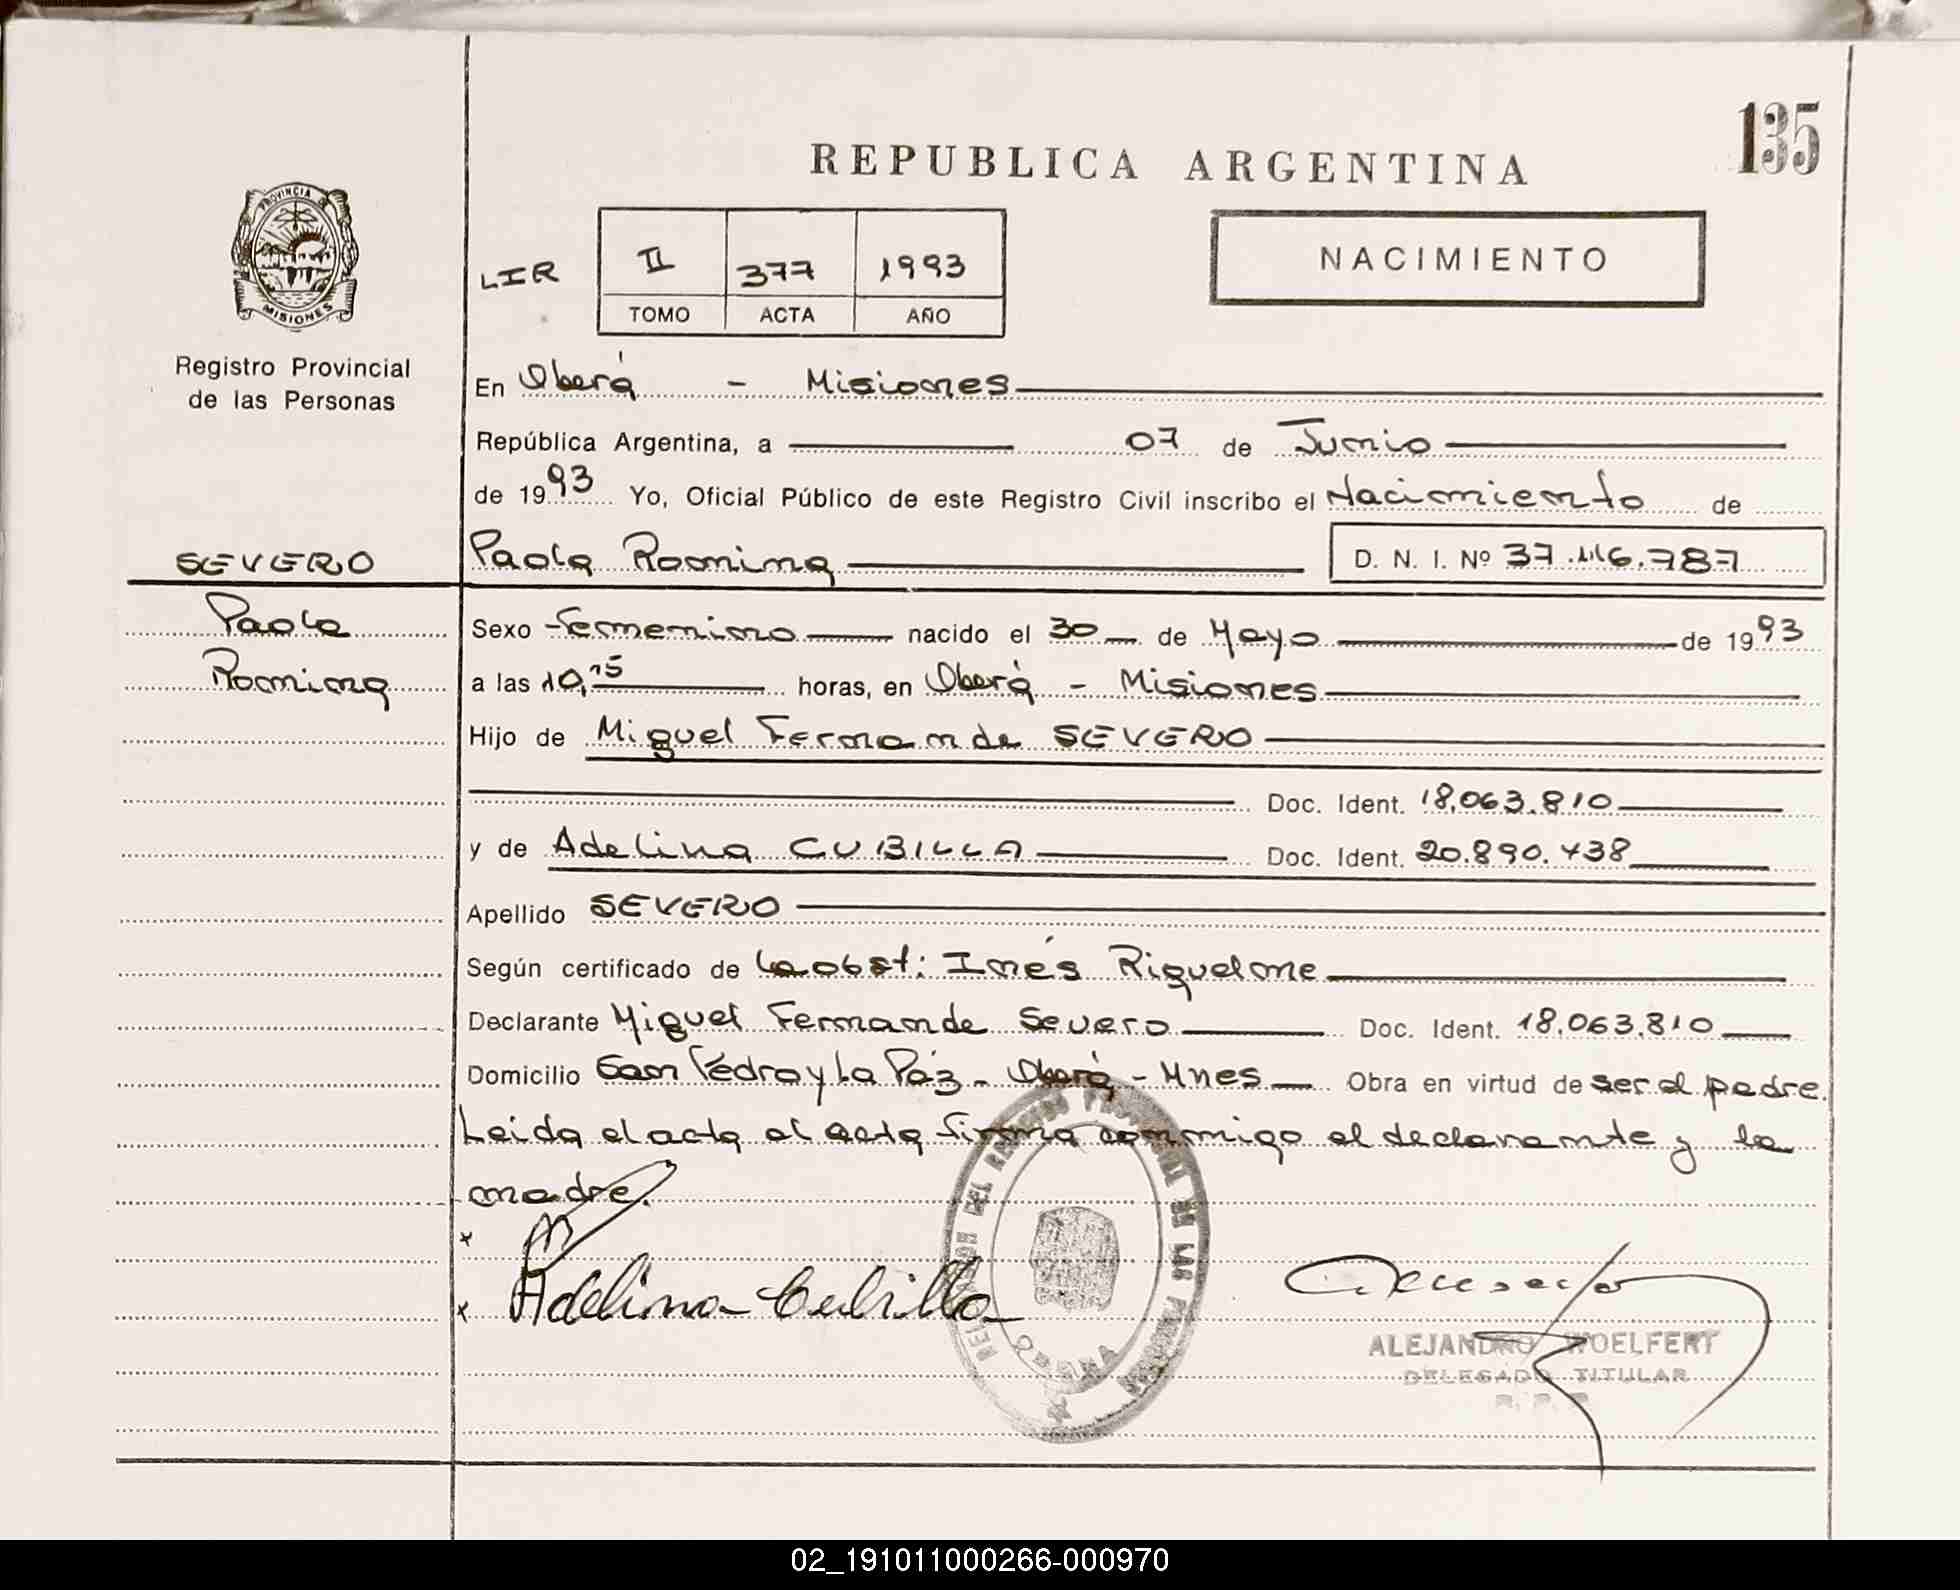 135
REPUBLICA ARGENTINA
PROVINCIA
MISIONES
Registro Provincial
de las Personas
LIR II 377 1993
TOMO ACTA AÑO
NACIMIENTO
En Oberá - Misiones
República Argentina, a 07 de Junio
de 1993 Yo, Oficial Público de este Registro Civil inscribo el Nacimiento de
SEVERO
Paola Romina D. N. I. Nº 37.116.787
Paola
Romina
Sexo Femenino nacido el 30 de Mayo de 1993
a las 10,15 horas, en Oberá - Misiones
Hijo de Miguel Fernande SEVERO
Doc. Ident. 18.063.810
y de Adelina CUBILLA Doc. Ident. 20.890.438
Apellido SEVERO
Según certificado de la obst: Inés Riquelme
Declarante Miguel Fernande Severo Doc. Ident. 18.063.810
Domicilio San Pedro y La Páz - Oberá - Mnes Obra en virtud de ser el padre.
Leida el acta el acta firma conmigo el declarante y la
madre.
x
x Adelina Cubilla
DEL REGISTRO PROVINCIAL DE LAS PERSONAS
OBERA
ALEJANDRO WOELFERT
DELEGADO TITULAR
02_191011000266-000970